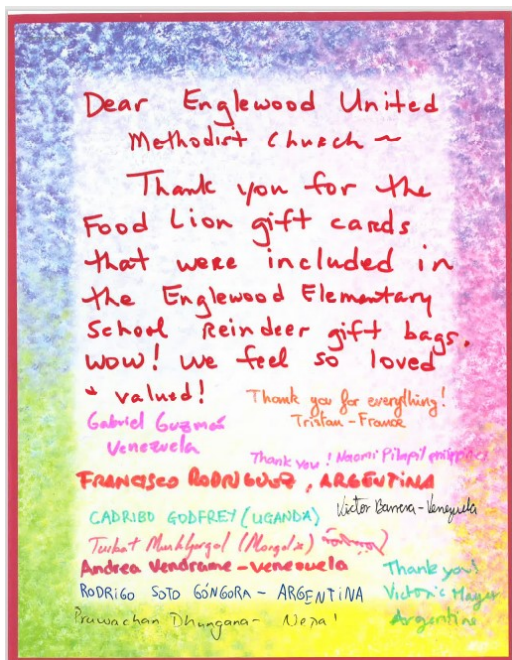 Dear Englewood United
Methodist Church ~
Thank you for the
Food Lion gift cards
that were included in
the Englewood Elementary
School Reindeer gift bags.
wow! we feel so loved
+ valued!
Thank you for everything!
Tristan - France
Gabriel Guzmán
Venezuela
Thank you! Naomi Pilapil philippines
FRANCISCO RODRIGUEZ, ARGENTINA
Victor Barrera - Venezuela
CADRIBO GODFREY (UGANDA)
(Mongolia)
Andrea Vendrame - venezuela
Thank you!
RODRIGO SOTO GÓNGORA - ARGENTINA
Prawachan Dhungana - Nepal
Argentina